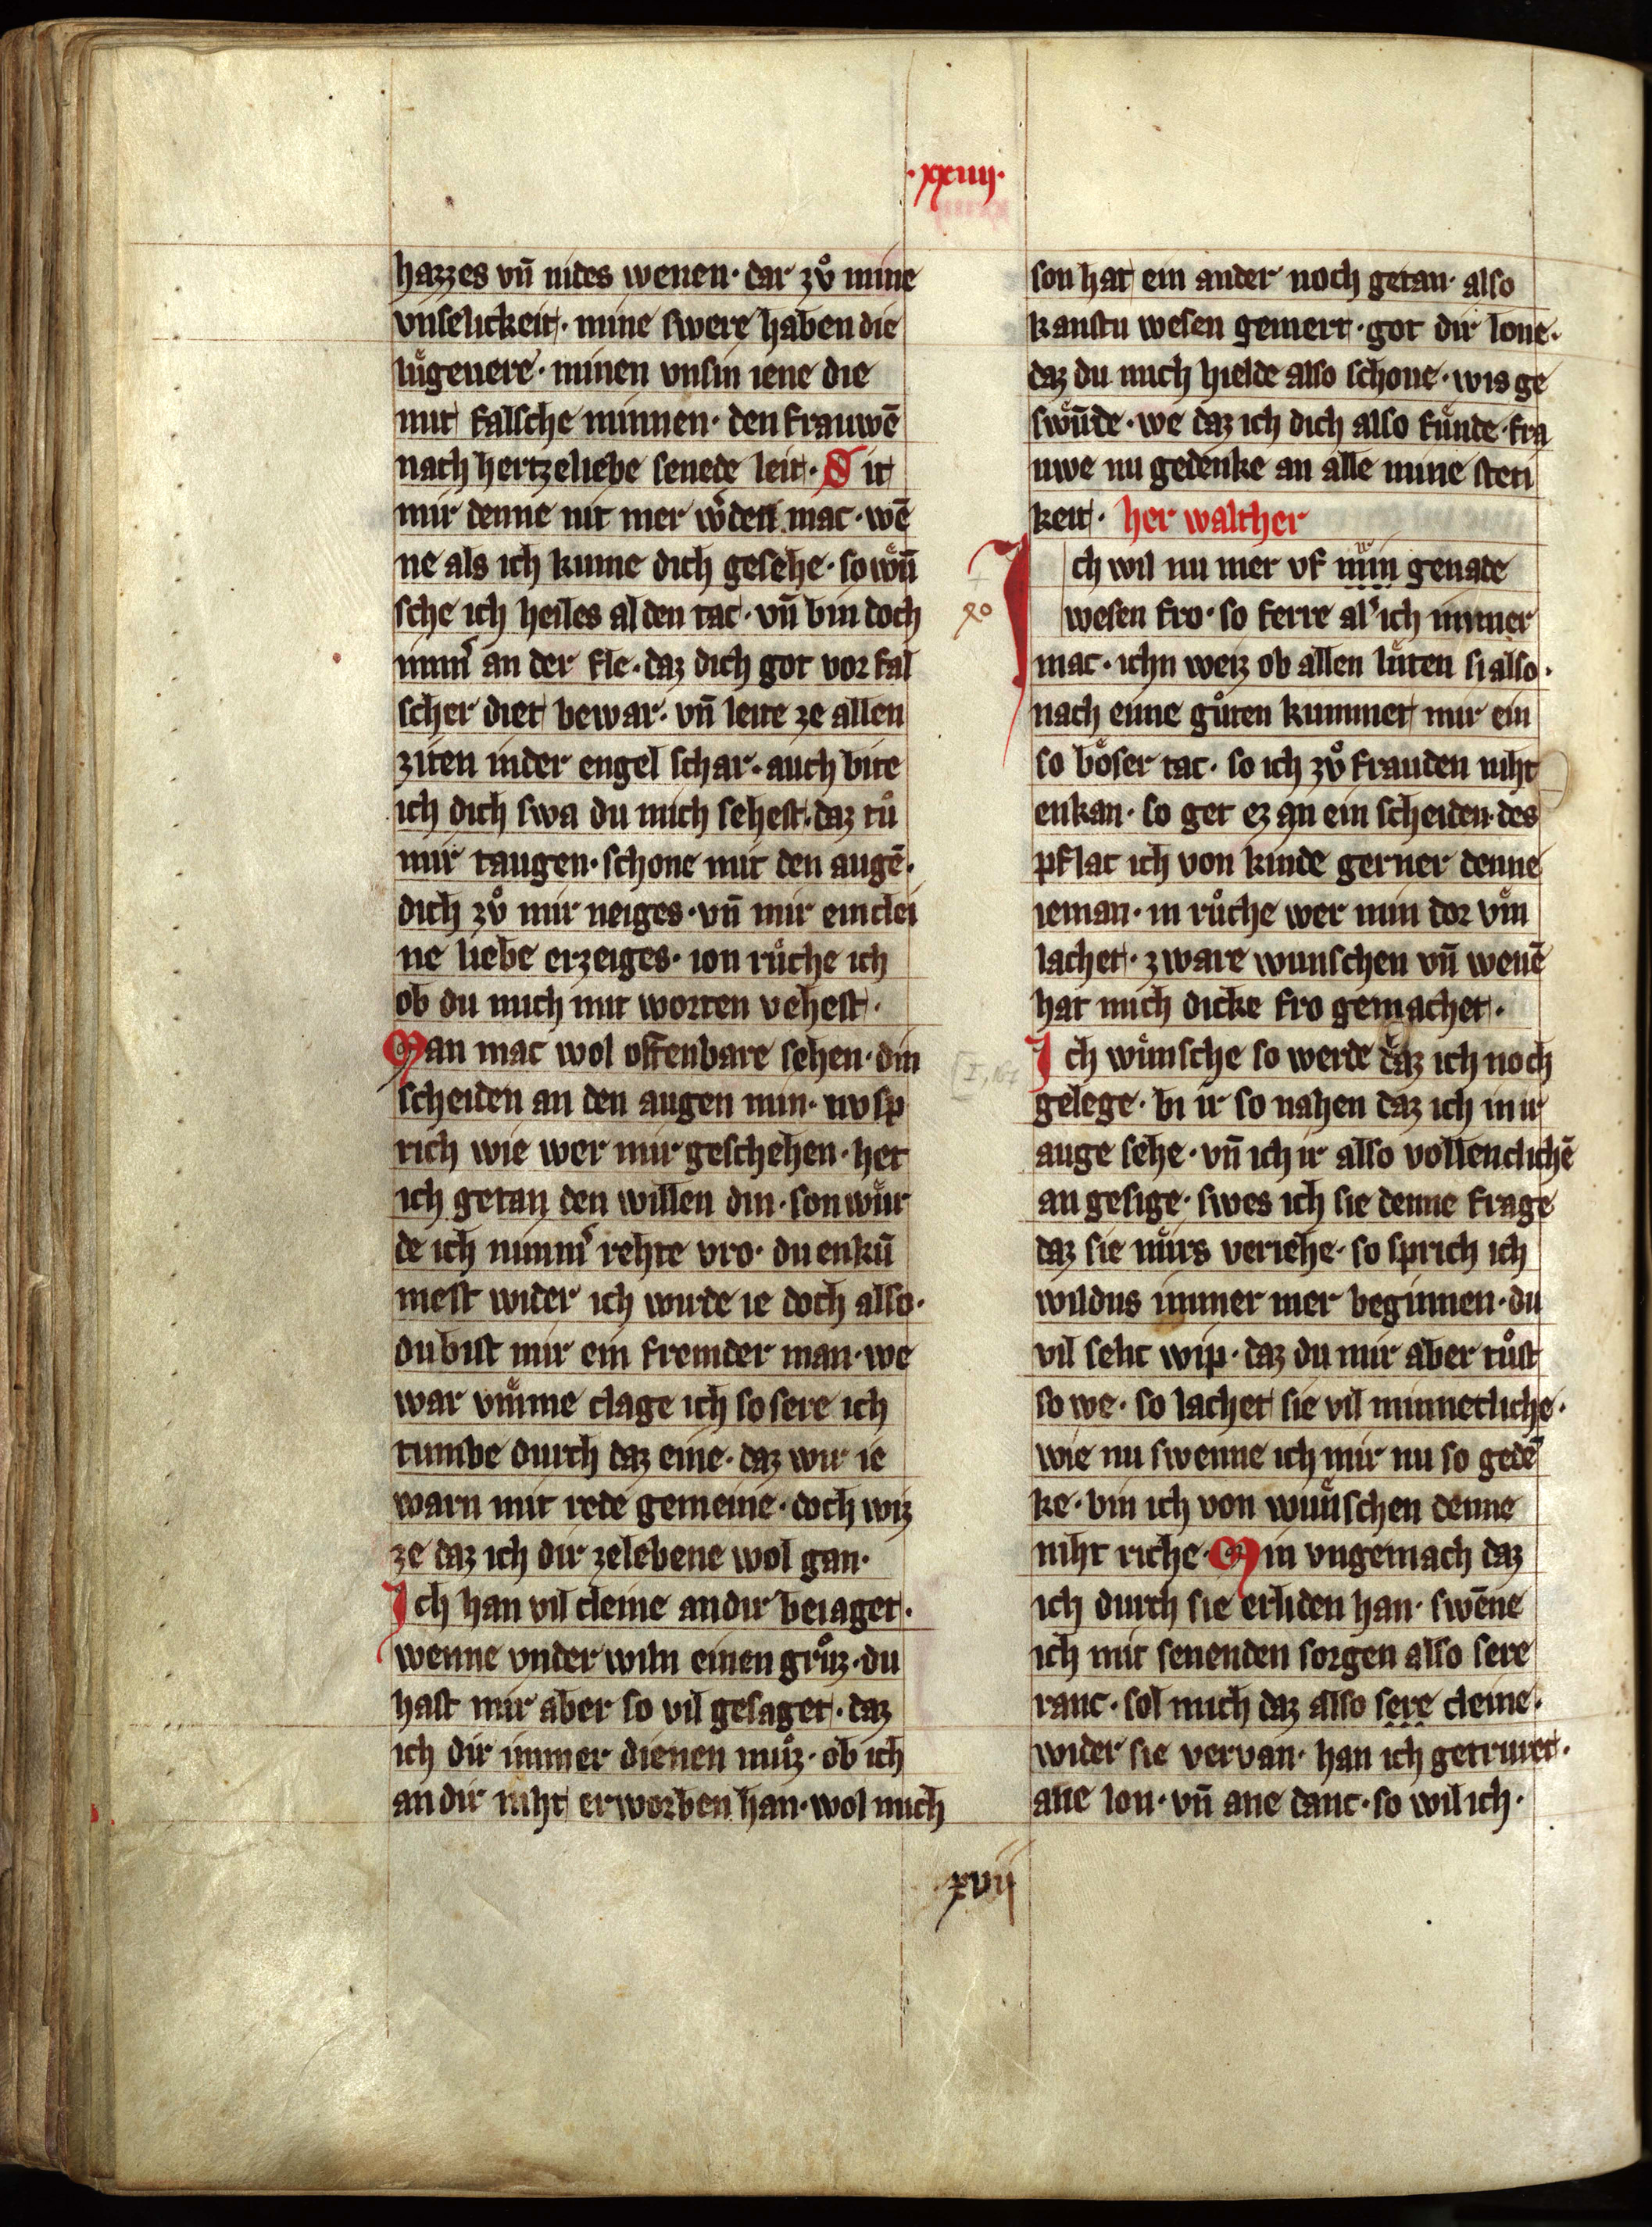 ·xxiiij·
hazzes vn̄ nides wenen· dar zuͦ mine
vnselickeit· mine swere haben die
luͤgenere· minen vnsin iene die
mit falsche minnen· den frauwē
nach hertzeliebe senede leit· Dir
mir denne nit mer wͦden mac· wē
ne als ich kume dich gesehe· so wuͤn̄
sche ich heiles al den tac· vn̄ bin doch
nim͛ an der fle· daz dich got vor fal
scher diet bewar· vn̄ leite ze allen
ziten inder engel schar· auch bite
ich dich swa du mich sehest· daz tuͦ
mir taugen· schone mit den augē·
dich zuͦ mir neiges· vn̄ mir ein clei
ne liebe erzeiges· ion ruͦche ich
ob du mich mit worten vehest·
Man mac wol offenbare sehen· din
scheiden an den augen min· nv sp
rich wie wer mir geschehen· het
ich getan den willen din· son wuͤr
de ich nimm͛ rehte vro· du enkū
mest wider ich wurde ie doch also·
du bist mir ein fremder man· we
war vmͤme clage ich so sere ich
tumbe durch daz eine· daz wir ie
warn mit rede gemeine· doch wiz
ze daz ich dir zelebene wol gan·
Ich han vil cleine an dir beiaget·
wenne vnder wiln einen gruͦz· du
hast mir aber so vil gesaget· daz
ich dir immer dienen muͦz· ob ich
an dir niht erworben han· wol mich
son hat ein ander noch getan· also
kanstu wesen gemert· got dir lone·
daz du mich hielde also schone· wis ge
swuͤn̄de· we daz ich dich also fuͤnde· fra
uwe nu gedenke an alle mine steti
keit· her walther
Ich wil nu mer vf min genade
wesen fro· so ferre al͛ ich immer
mac· ichn weiz ob allen luͤten si also·
nach eime guͦten kummet mir ein
so boͤser tac· so ich zuͦ frauden niht
enkan· so get ez an ein scheiden· des
pflac ich von kinde gerner denne
ieman· in ruͦche wer min dor vm
lachet· zware wunschen vn̄ wenē
hat mich dicke fro gemachet·
Ich wuͤnsche so werde daz ich noch
gelege· bi ir so nahen daz ich in ir
auge sehe· vn̄ ich ir also vollenclichē
an gesige· swes ich sie denne frage
daz sie mirs veriehe· so sprich ich
wildus immer mer beginnen· du
vil selic wip· daz du mir aber tuͦst
so we· so lachet sie vil minnecliche·
wie nu swenne ich mir nu so gedē
ke· bin ich von wuͤnschen denne
niht riche· Min vngemach daz
ich durch sie erliden han· swēne
ich mit senenden sorgen also sere
ranc· sol mich daz also sere cleine·
wider sie vervan· han ich getruret·
ane lon· vn̄ ane danc· so wil ich·
xvij